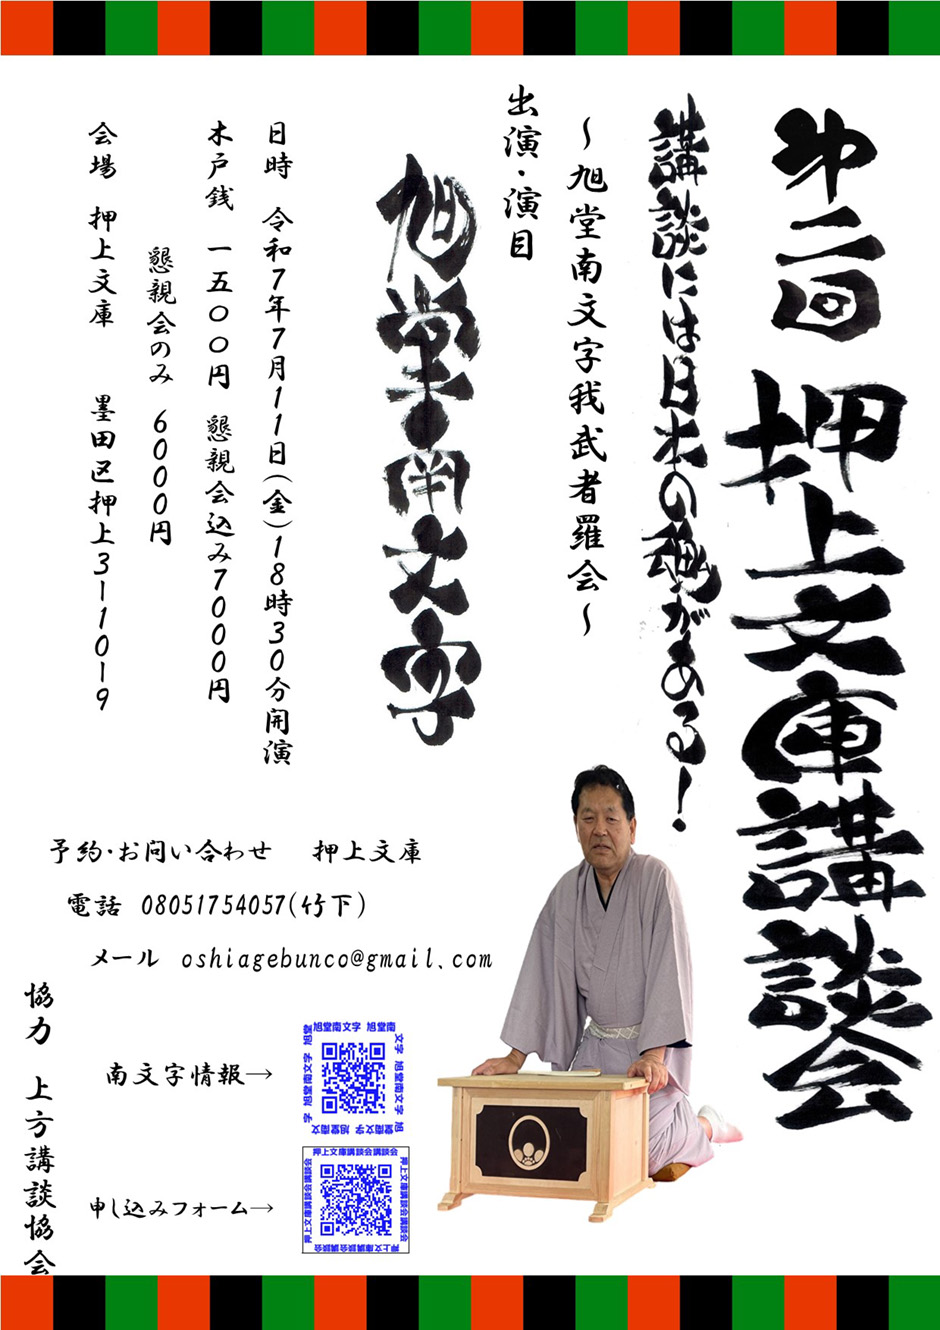 第二回 押上文庫講談会
講談には日本の魂がある!
～旭堂南文字我武者羅会～
出演・演目
旭堂南文字
日時 令和7年7月11日(金)18時30分開演
木戸銭 一五〇〇円 懇親会込み7000円
懇親会のみ 6000円
会場 押上文庫 墨田区押上3-10-9
予約・お問い合わせ 押上文庫
電話 08051754057(竹下)
メール oshiagebunco@gmail.com
協力 上方講談協会
南文字情報→
旭堂南文字 旭堂南
文字 旭堂南文字 旭
旭堂南文字 旭堂南文
字 旭堂南文字 旭堂
申し込みフォーム→
押上文庫講談会講談会
押上文庫講談会講談会
押上文庫講談会講談会
押上文庫講談会講談会